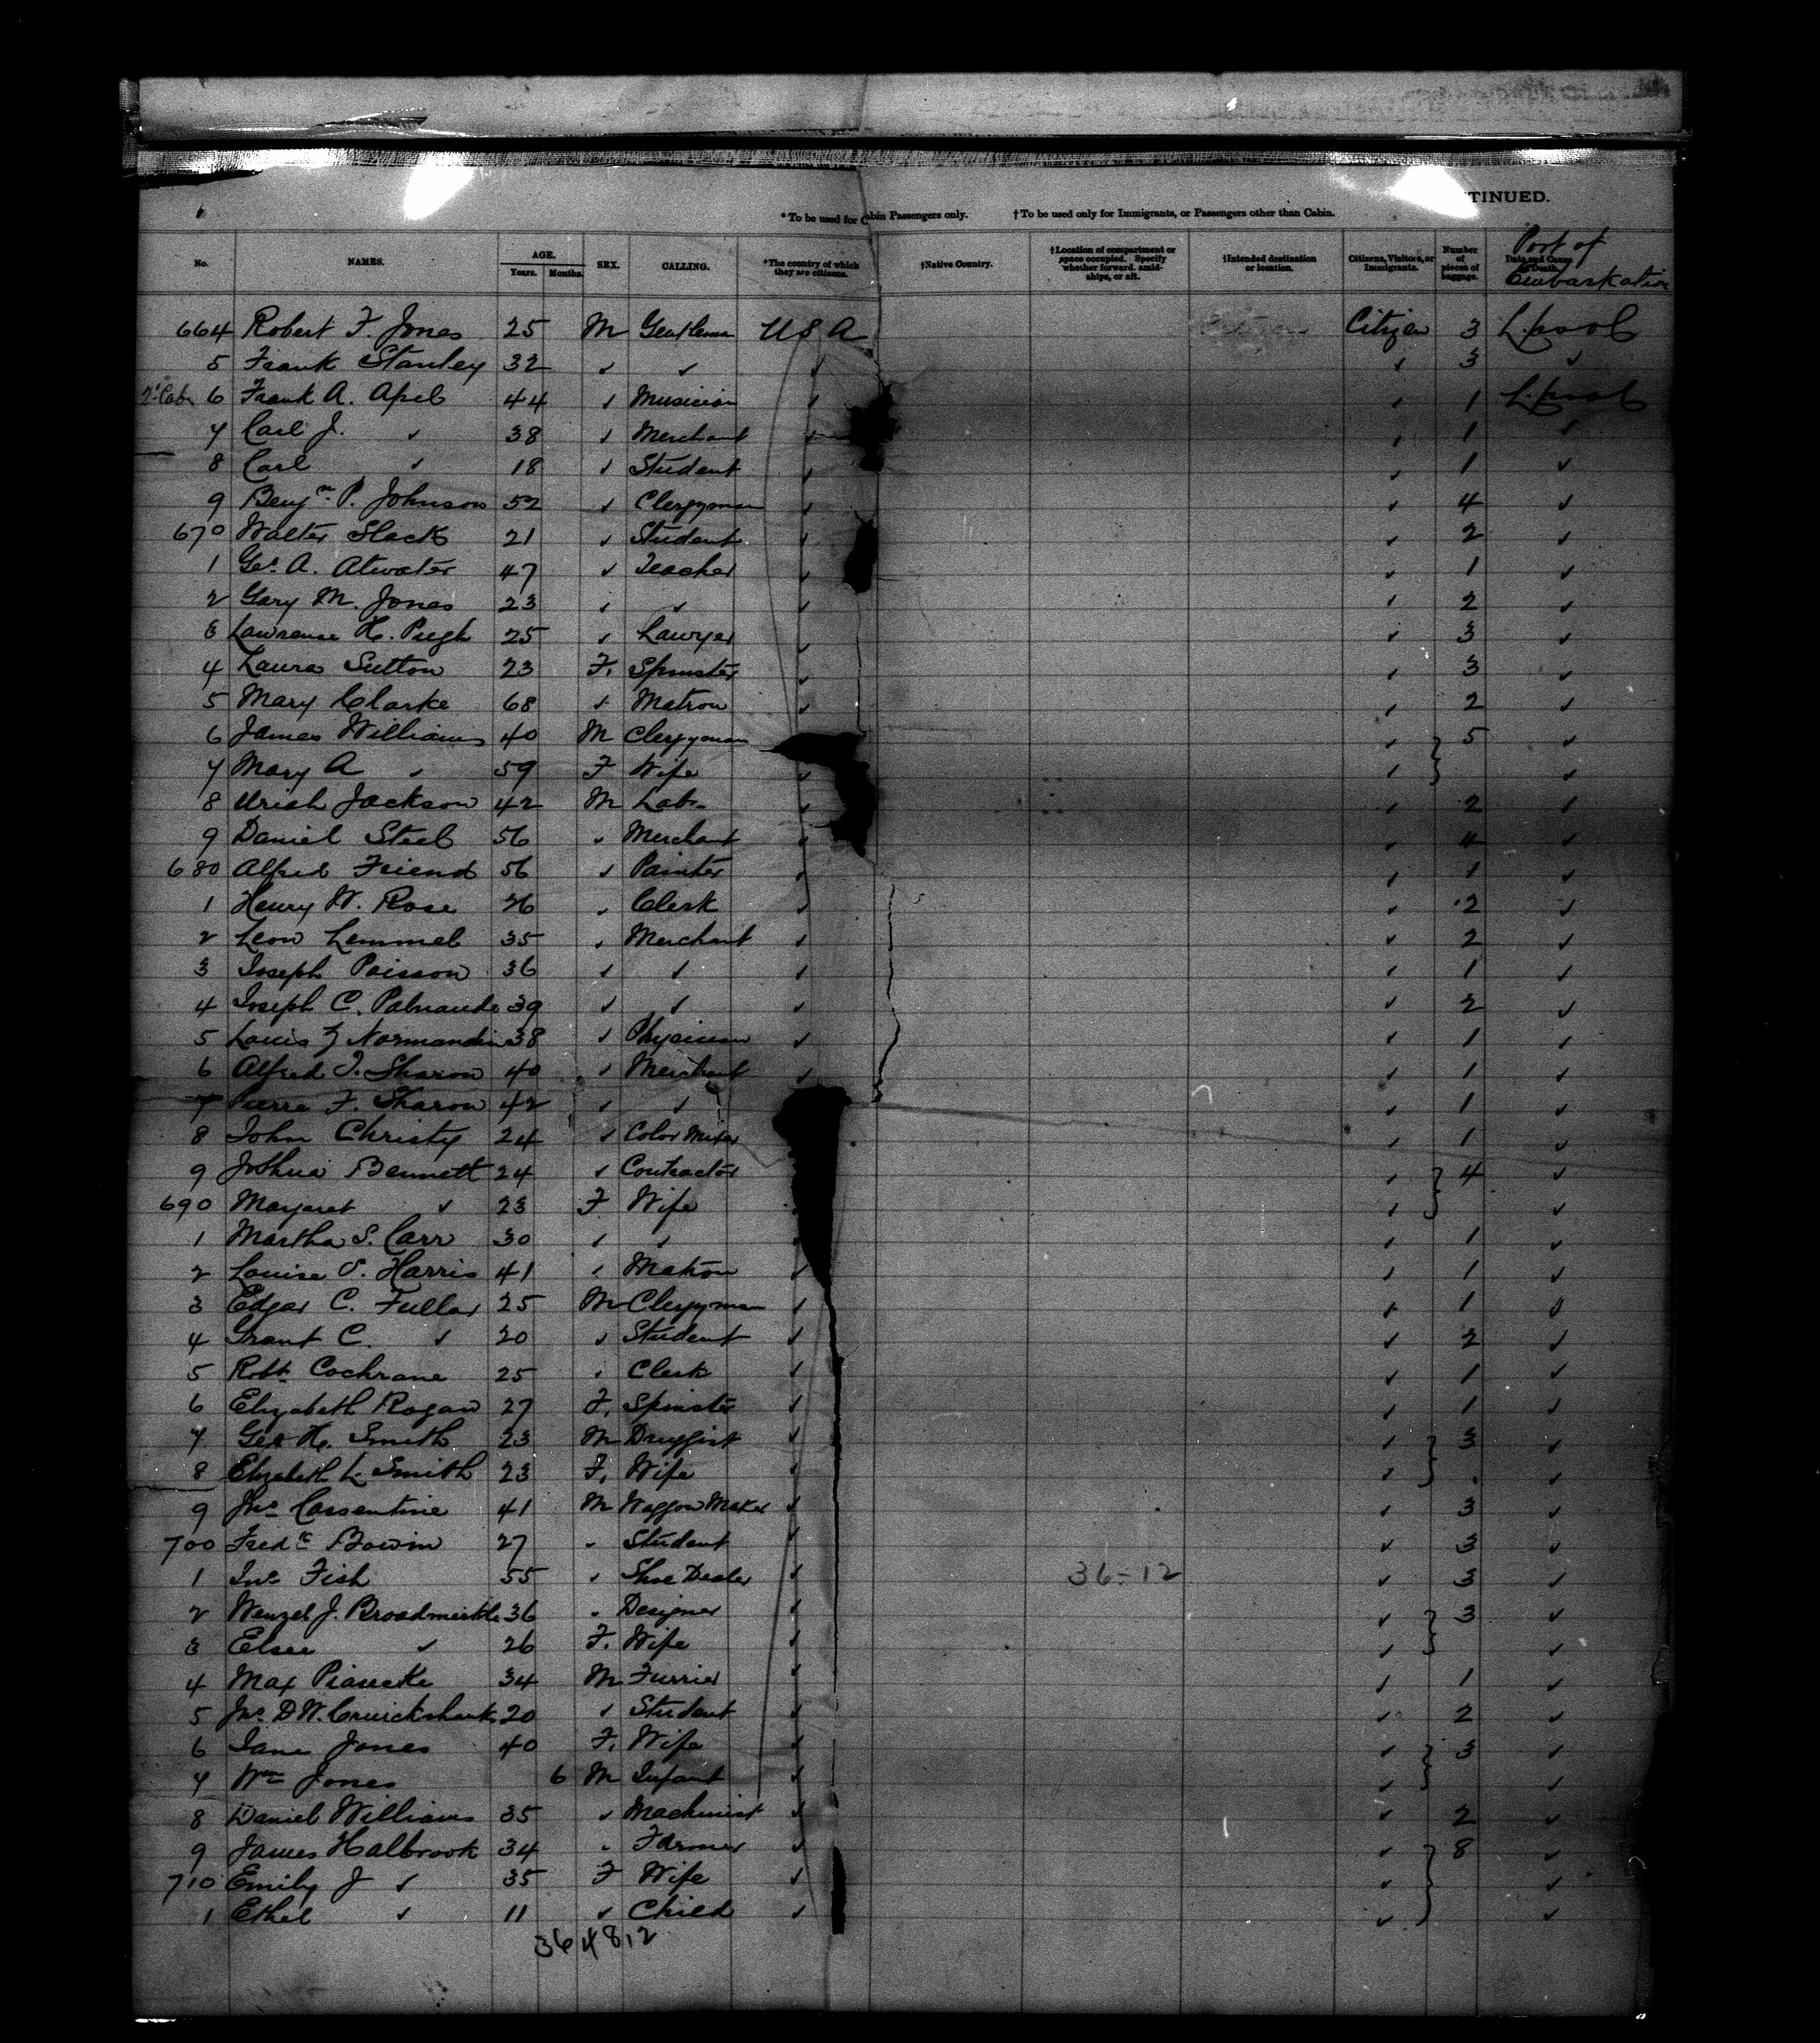 TINUED.
* To be used for Cabin Passengers only. † To be used only for Immigrants, or Passengers other than Cabin.
No. NAMES. AGE. Years. Months. SEX. CALLING. *The country of which they are citizens. †Native Country. †Location of compartment or space occupied. Specify whether forward, amidships, or aft. †Intended destination or location. Citizens, Visitors, or Immigrants. Number of pieces of baggage. Date and Cause of Death. Port of Embarkation
664 Robert F. Jones 25 M Gentleman U S A Citizen 3 L.pool
5 Frank Stanley 32 ✓ ✓ ✓ ✓ 3 ✓
2d Cab. 6 Frank A. Apel 44 ✓ Musician ✓ ✓ 1 L.pool
7 Carl J. ✓ 38 ✓ Merchant ✓ ✓ 1 ✓
8 Carl ✓ 18 ✓ Student ✓ ✓ 1 ✓
9 Benjn P. Johnson 52 ✓ Clergyman ✓ ✓ 4 ✓
670 Walter Slack 21 ✓ Student ✓ ✓ 2 ✓
1 Geo. A. Atwater 47 ✓ Teacher ✓ ✓ 1 ✓
2 Gary M. Jones 23 ✓ ✓ ✓ ✓ 2 ✓
3 Lawrence H. Pugh 25 ✓ Lawyer ✓ ✓ 3 ✓
4 Laura Sutton 23 F. Spinster ✓ ✓ 3 ✓
5 Mary Clarke 68 ✓ Matron ✓ ✓ 2 ✓
6 James Williams 40 M Clergyman ✓ } 5 ✓
7 Mary A ✓ 59 F Wife ✓ ✓ ✓
8 Uriah Jackson 42 M Labr ✓ ✓ 2 ✓
9 Daniel Steel 56 ✓ Merchant ✓ ✓ 4 ✓
680 Alfred Friend 56 ✓ Painter ✓ ✓ 1 ✓
1 Henry W. Rose 26 ✓ Clerk ✓ ✓ 2 ✓
2 Leon Lemmel 35 ✓ Merchant ✓ ✓ 2 ✓
3 Joseph Poisson 36 ✓ ✓ ✓ ✓ 1 ✓
4 Joseph C. 39 ✓ ✓ ✓ ✓ 2 ✓
5 Louis Z Normandin 38 ✓ Physician ✓ ✓ 1 ✓
6 Alfred T. Sharon 40 ✓ Merchant ✓ ✓ 1 ✓
7 Pierre F. Sharon 42 ✓ ✓ ✓ 1 ✓
8 John Christy 24 ✓ Color Mixer ✓ 1 ✓
9 Joshua Bennett 24 ✓ Contractor ✓ } 4 ✓
690 Margaret ✓ 23 F Wife ✓ ✓
1 Martha S. Carr 30 ✓ ✓ ✓ 1 ✓
2 Louise S. Harris 41 ✓ Matron ✓ ✓ 1 ✓
3 Edgar C. Fuller 25 M Clergyman ✓ ✓ 1 ✓
4 Grant C. ✓ 20 ✓ Student ✓ ✓ 2 ✓
5 Robt. Cochrane 25 ✓ Clerk ✓ ✓ 1 ✓
6 Elizabeth Rogan 27 F. Spinster ✓ ✓ 1 ✓
7 Geo H. Smith 23 M Druggist ✓ ✓ } 3 ✓
8 Elizabeth L Smith 23 F. Wife ✓ ✓ ✓
9 Jno. Corsentine 41 M Waggon Maker ✓ ✓ 3 ✓
700 Fredc Bowin 27 ✓ Student ✓ ✓ 3 ✓
1 Jno. Fish 55 ✓ Shoe Dealer ✓ 36-12 ✓ 3 ✓
2 Wenzel J. 36 ✓ Designer ✓ ✓ } 3 ✓
3 Elsee ✓ 26 F. Wife ✓ ✓ ✓
4 Max 34 M Furrier ✓ ✓ 1 ✓
5 Jno. D W. Cruickshank 20 ✓ Student ✓ ✓ 2 ✓
6 Jane Jones 40 F. Wife ✓ ✓ } 3 ✓
7 Wm Jones 6 M Infant ✓ ✓ ✓
8 Daniel Williams 35 ✓ Machinist ✓ ✓ 2 ✓
9 James Halbrook 34 ✓ Farmer ✓ ✓ } 8 ✓
710 Emily J ✓ 35 F Wife ✓ ✓ ✓
1 Ethel ✓ 11 ✓ Child ✓ ✓ ✓
36 48,2